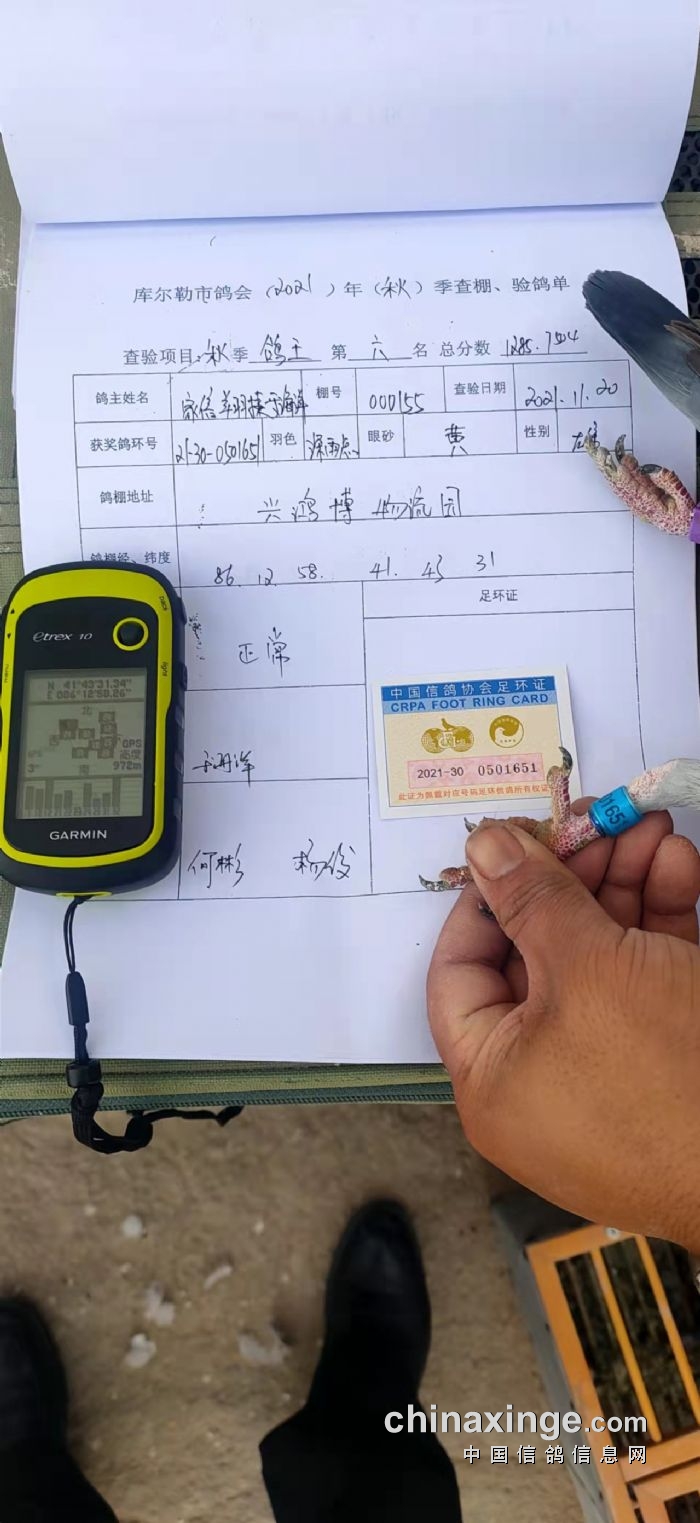 库尔勒市鸽会（2021）年（秋）季查棚、验鸽单
查验项目：秋季 鸽王 第 六 名 总分数 1285.754
鸽主姓名 棚号 000155 查验日期 2021.11.20
获奖鸽环号 21-30-0501651 羽色 深雨点 眼砂 黄 性别 雄
鸽棚地址 兴鸿博物流园
鸽棚经、纬度 86.12.58. 41.43 31
足环证
正常
何彬 杨俊
etrex 10
back
menu
light
N 41°43'31.34"
E 086°12'58.26"
北
GPS
高度
3° 南 972m
GARMIN
中国信鸽协会足环证
CRPA FOOT RING CARD
2021-30 0501651
此证为佩戴对应号码足环信鸽所有权证
165
chinaxinge.com
中国信鸽信息网